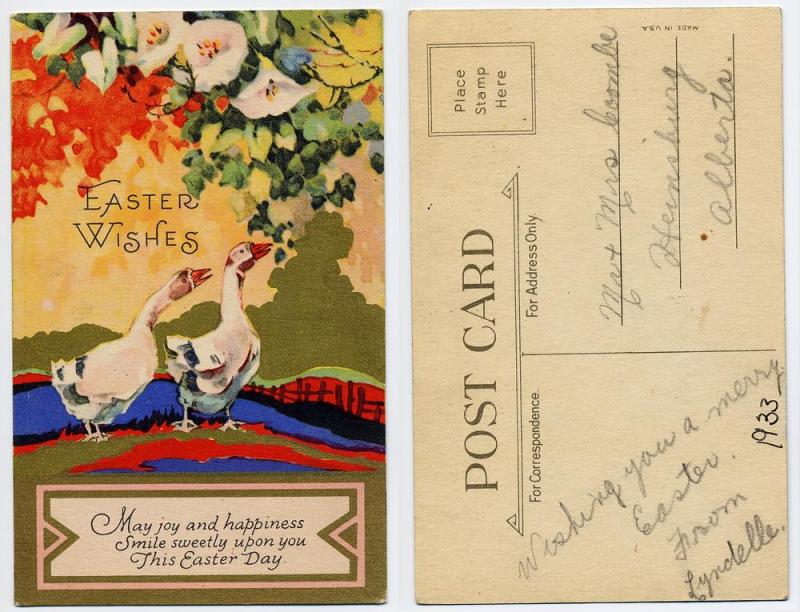 EASTER
WISHES
May joy and happiness
Smile sweetly upon you
This Easter Day.
MADE IN U.S.A.
Place
Stamp
Here
POST CARD
For Address Only
For Correspondence.
Mr + Mrs Coombe
Heinsburg
Alberta.
Wishing you a merry
Easter.
From
Lyndelle.
1933